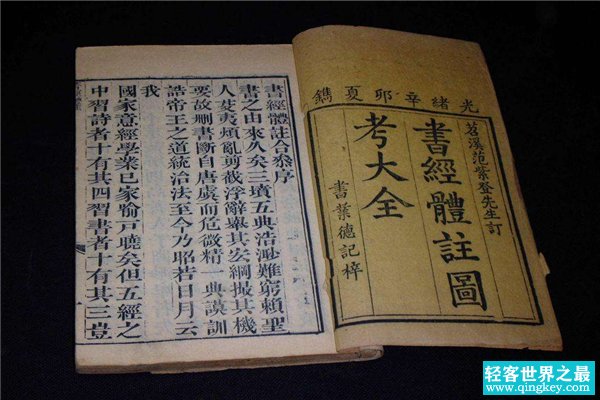 光緒辛卯夏鐫
苕溪范紫登先生訂
書經體註圖
考大全
書業德記梓
書經體註合叅序
書之由來久矣三墳五典浩渺難窮賴聖
人芟夷煩亂剪截浮辭舉其宏綱撮其機
要故刪書斷自唐虞而危微精一典謨訓
誥帝王之道統治法至今乃昭若日月云
我
國家意經學業已家喻戶曉矣但五經之
中習詩者十有其四習書者十有其三豈
轻客世界之最
www.qingkey.com